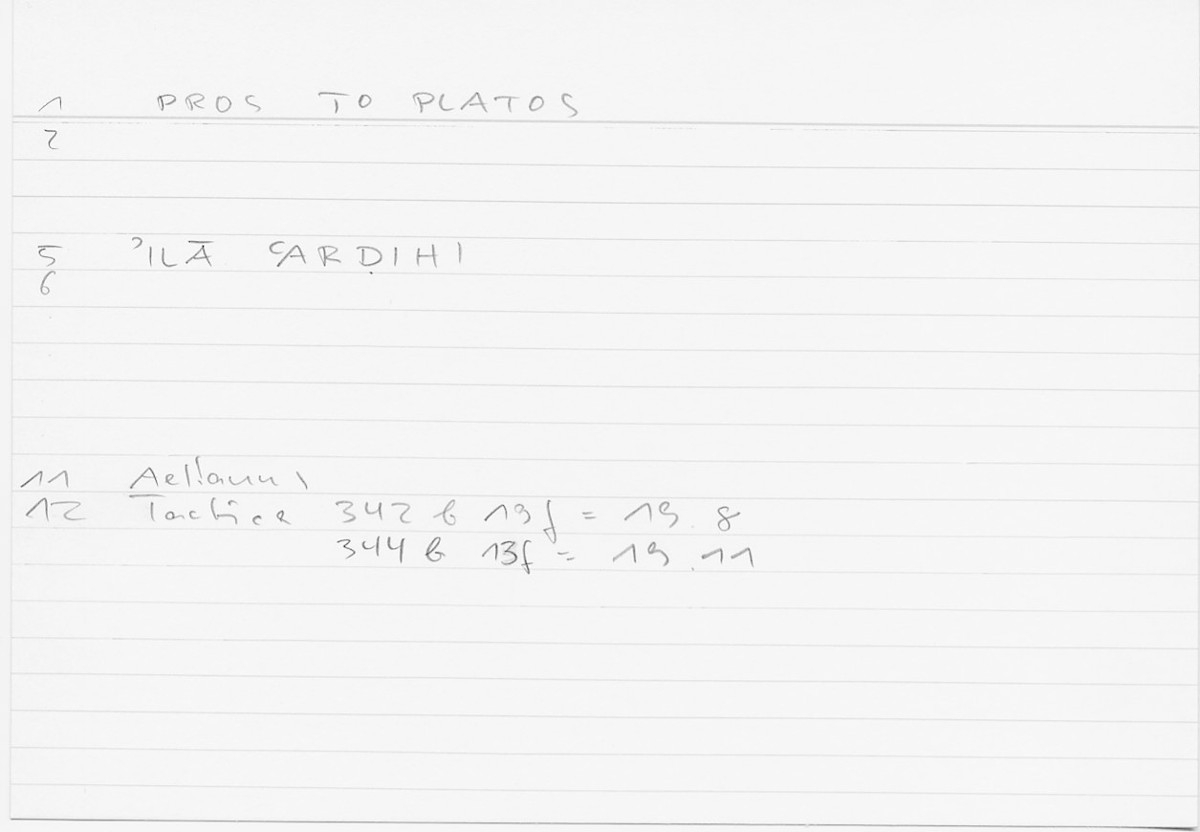 1 PROS TO PLATOS
2
5 ʾILĀ ʿARḌIHI
6
11 Aelianus
12 Tactica 342 b 19f = 19.8
344 b 13f = 19.11